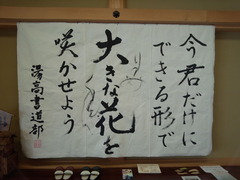 今君だけに
できる形で
大きな花を
咲かせよう
湯高書道部